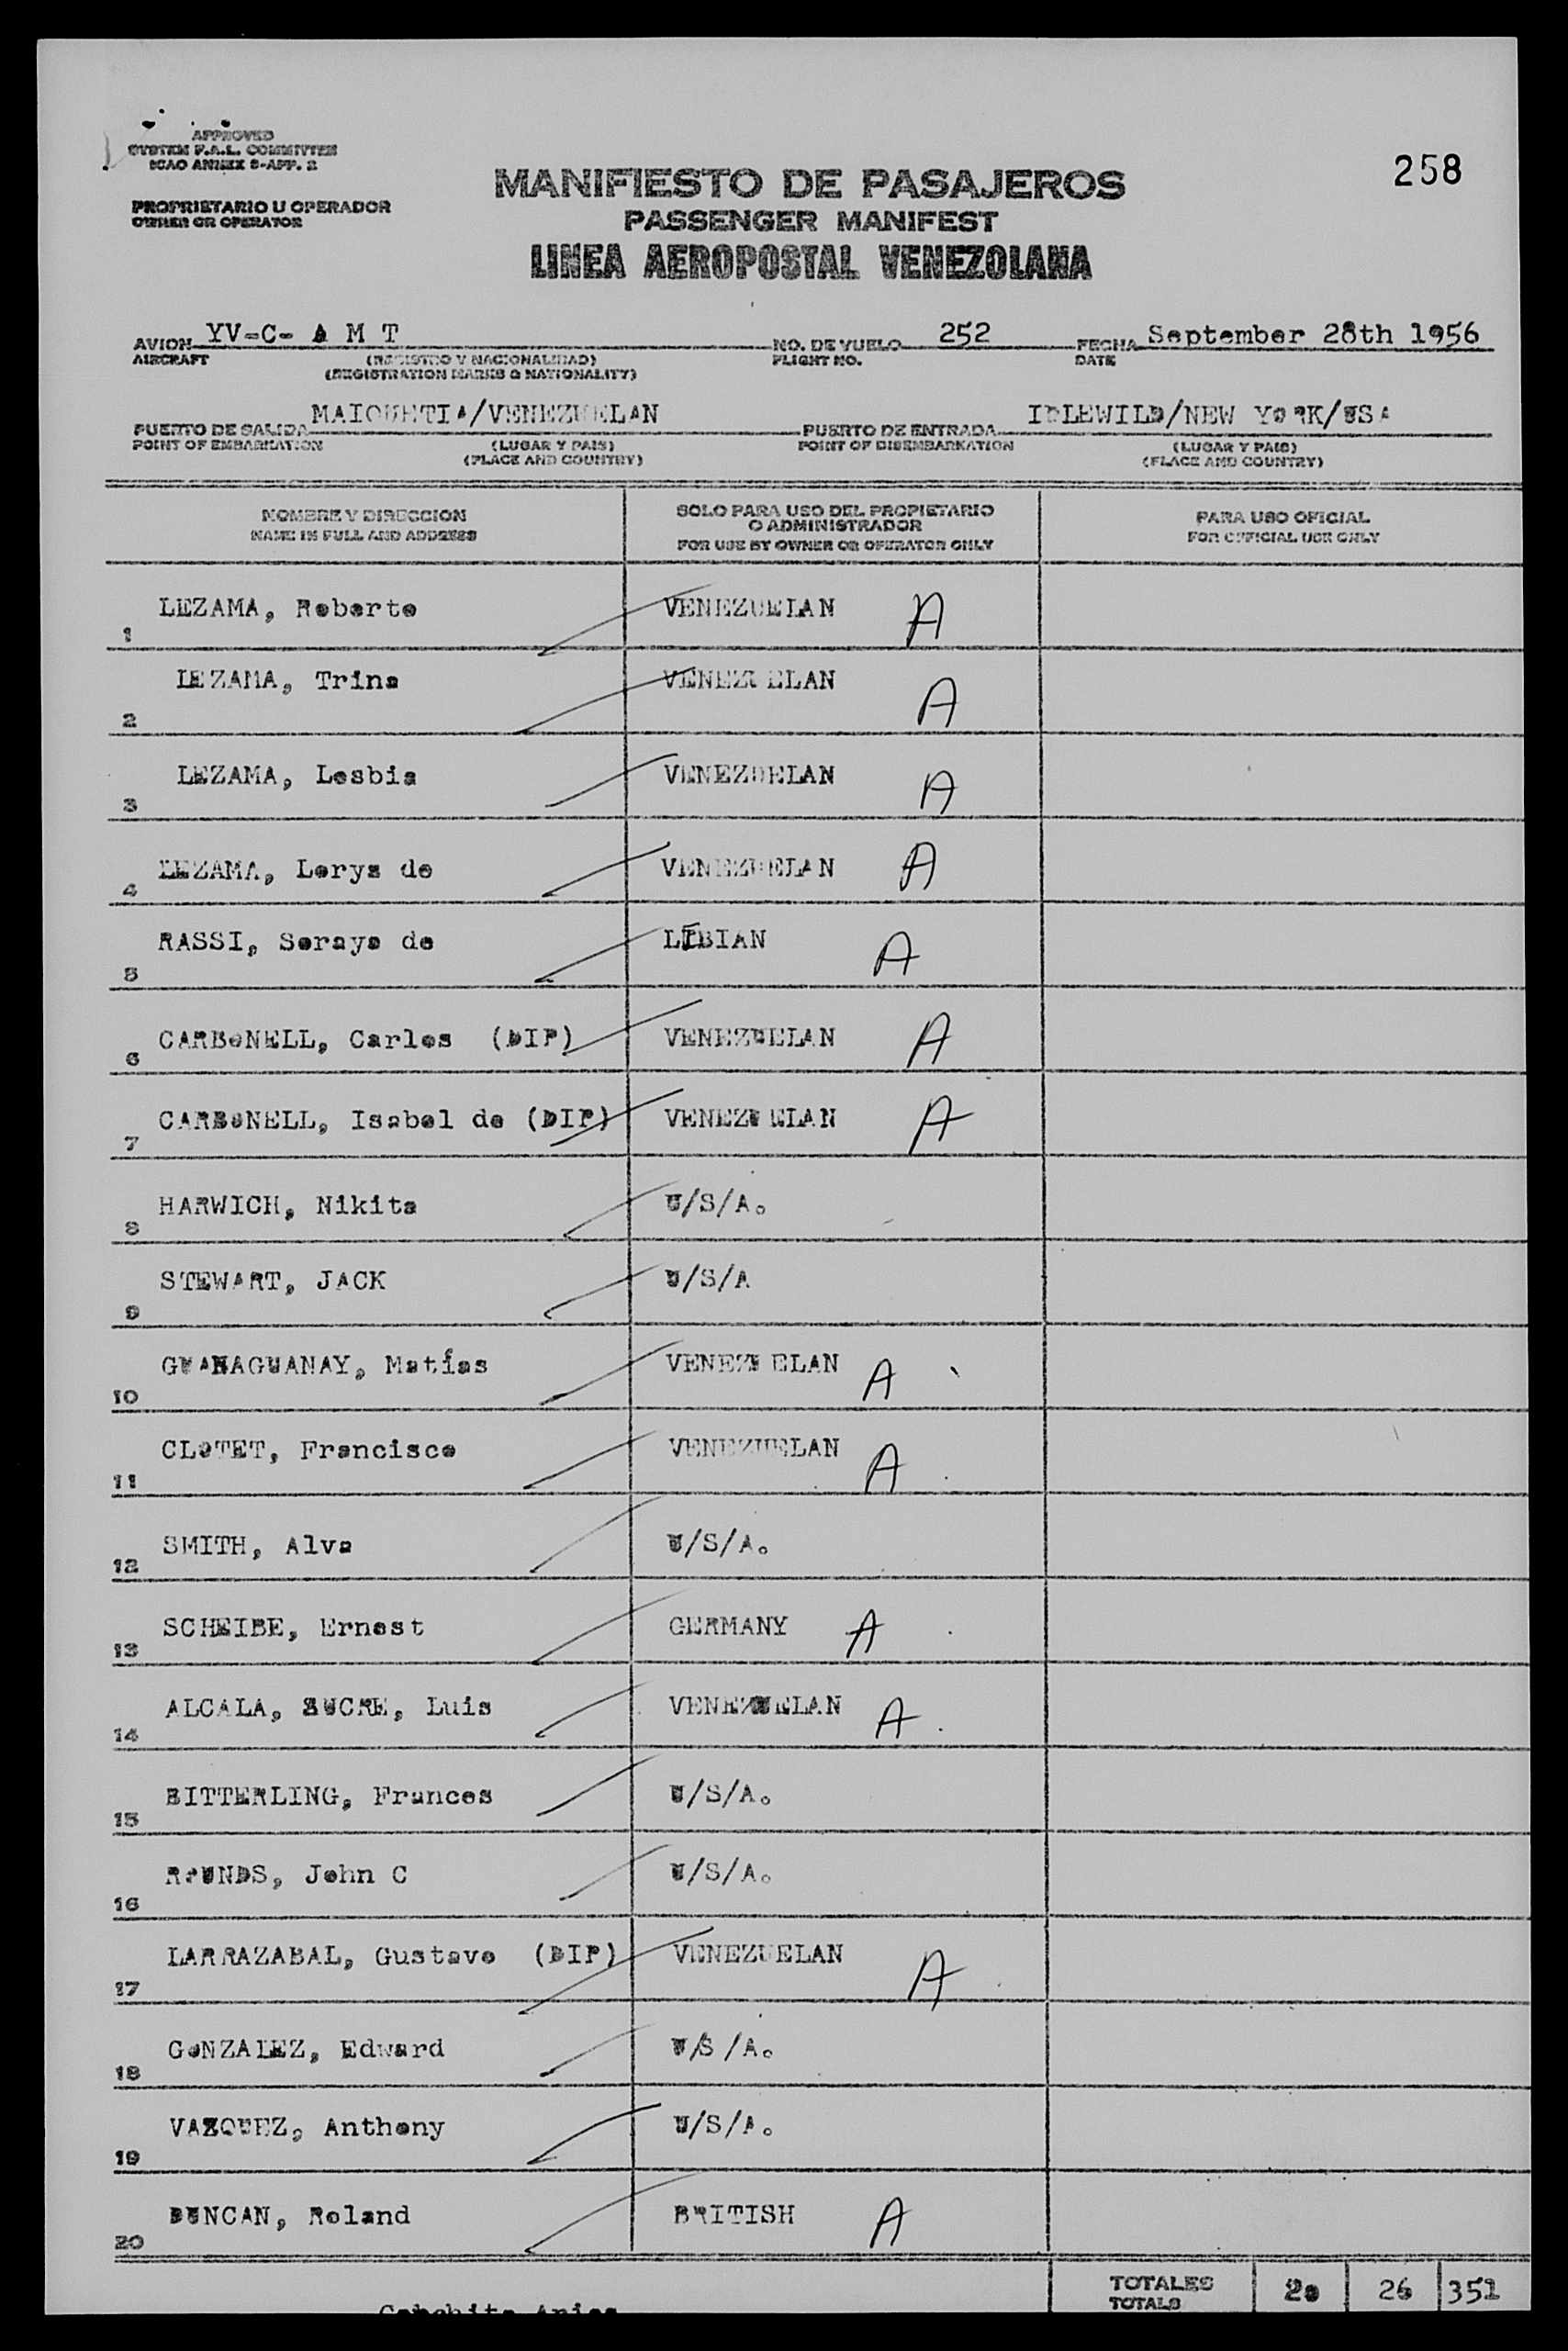 APPROVED
SYSTEM F.A.L. COMMITTEE
ICAO ANNEX 9-APP. 2
258
MANIFIESTO DE PASAJEROS
PROPRIETARIO U OPERADOR
OWNER OR OPERATOR
PASSENGER MANIFEST
LINEA AEROPOSTAL VENEZOLANA
AVION YV-C- A M T NO. DE VUELO 252 FECHA September 28th 1956
AIRCRAFT (REGISTRO Y NACIONALIDAD) FLIGHT NO. DATE
(REGISTRATION MARKS & NATIONALITY)
PUERTO DE SALIDA MAIQUETIA/VENEZUELAN PUERTO DE ENTRADA IDLEWILD/NEW YORK/USA
POINT OF EMBARKATION (LUGAR Y PAIS) POINT OF DISEMBARKATION (LUGAR Y PAIS)
(PLACE AND COUNTRY) (PLACE AND COUNTRY)
NOMBRE Y DIRECCION SOLO PARA USO DEL PROPIETARIO O ADMINISTRADOR PARA USO OFICIAL
NAME IN FULL AND ADDRESS FOR USE BY OWNER OR OPERATOR ONLY FOR OFFICIAL USE ONLY
1 LEZAMA, Roberto VENEZUELAN A
2 LEZAMA, Trina VENEZUELAN A
3 LEZAMA, Lesbia VENEZUELAN A
4 LEZAMA, Lorys de VENEZUELAN A
5 RASSI, Soraya de LIBIAN A
6 CARBONELL, Carlos (DIP) VENEZUELAN A
7 CARBONELL, Isabel de (DIP) VENEZUELAN A
8 HARWICH, Nikita U/S/A.
9 STEWART, JACK U/S/A
10 GUANAGUANAY, Matías VENEZUELAN A
11 CLOTET, Francisco VENEZUELAN A
12 SMITH, Alva U/S/A.
13 SCHEIBE, Ernest GERMANY A
14 ALCALA, SUCRE, Luis VENEZUELAN A
15 BITTERLING, Frances U/S/A.
16 ROUNDS, John C U/S/A.
17 LARRAZABAL, Gustavo (DIP) VENEZUELAN A
18 GONZALEZ, Edward U/S/A.
19 VAZQUEZ, Anthony U/S/A.
20 DUNCAN, Roland BRITISH A
TOTALES 20 26 351
TOTALS